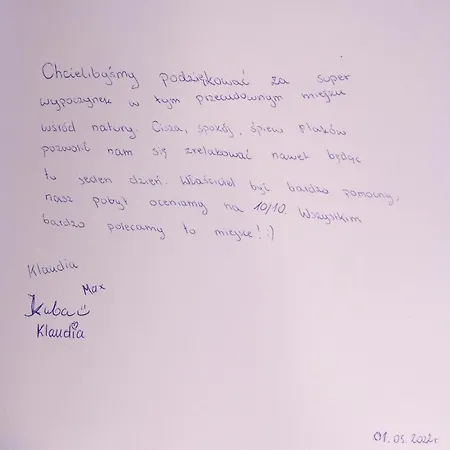 Chcielibyśmy podziękować za super
wypoczynek w tym przecudownym miejscu
wśród natury. Cisza, spokój, śpiew ptaków
pozwolił nam się zrelaksować nawet będąc
tu jeden dzień. Właściciel być bardzo pomocny,
nasz pobyt oceniamy na 10/10. Wszystkim
bardzo polecamy to miejsce! :)
Klaudia
Max
Kuba
Klaudia
01.05.2022r.